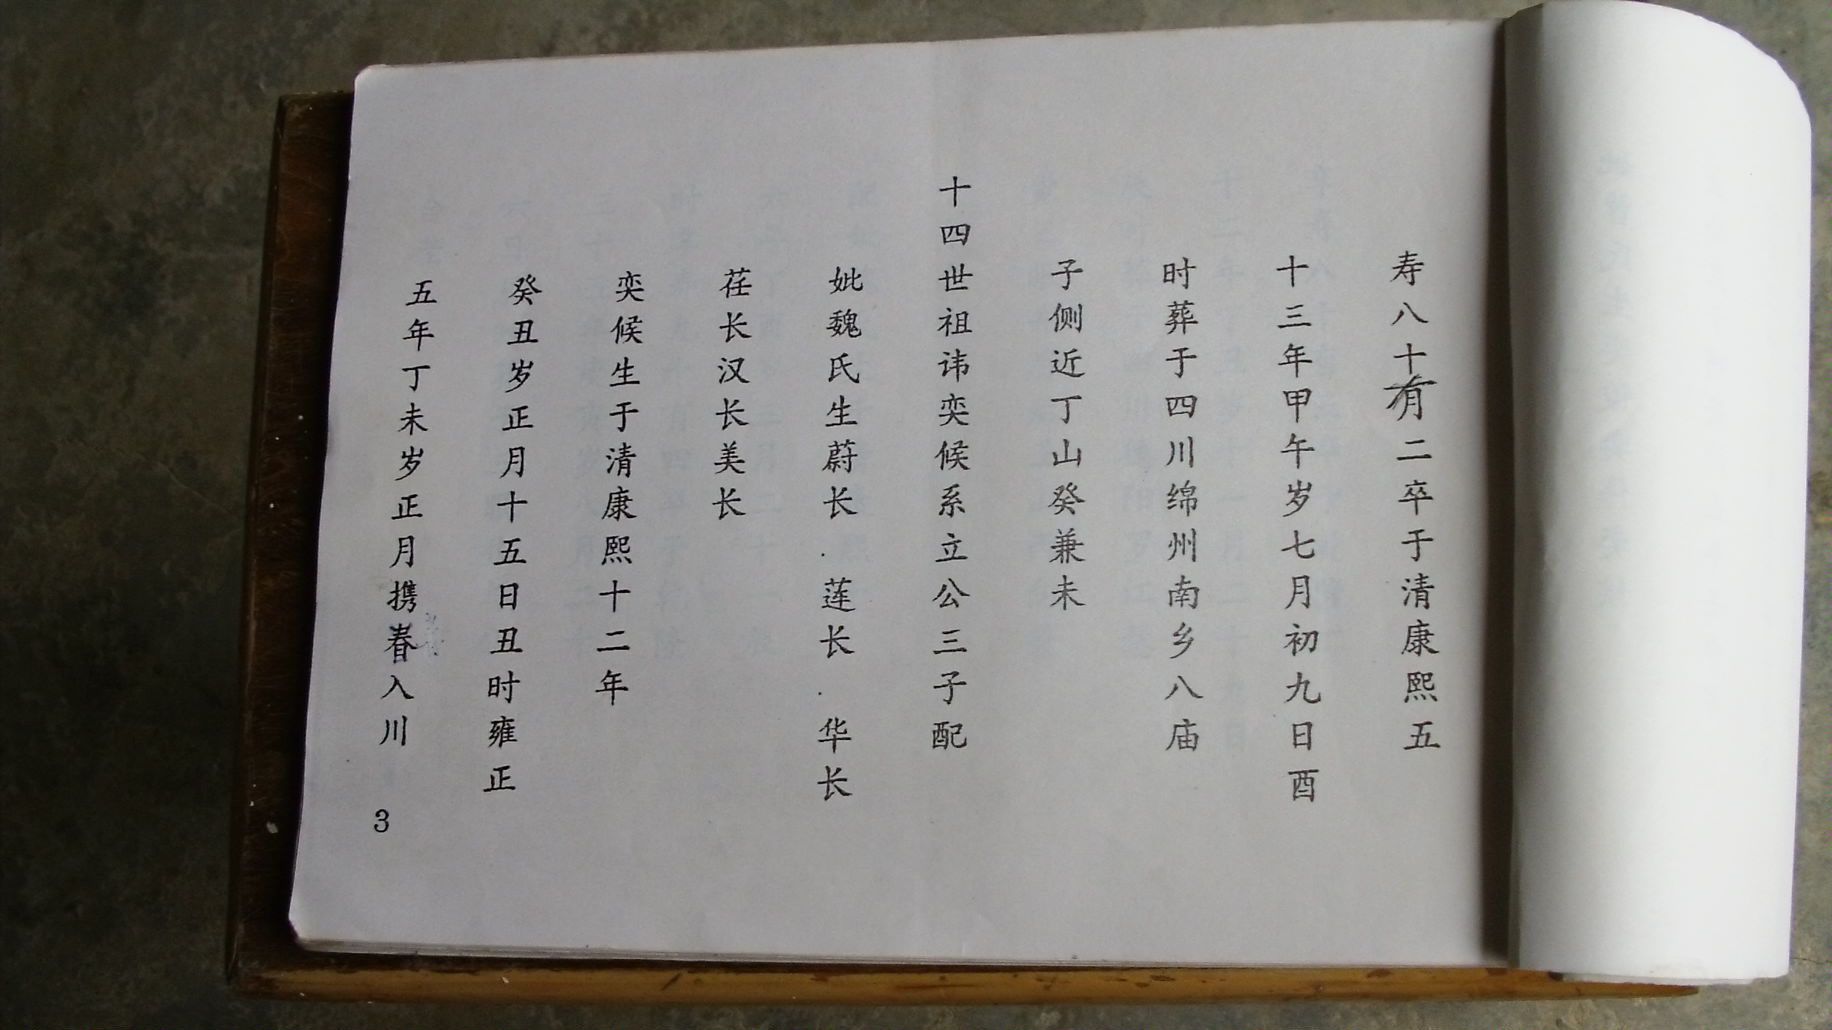 寿八十有二卒于清康熙五
十三年甲午岁七月初九日酉
时葬于四川绵州南乡八庙
子侧近丁山癸兼未
十四世祖讳奕候系立公三子配
妣魏氏生蔚长.莲长.华长
荏长汉长美长
奕候生于清康熙十二年
癸丑岁正月十五日丑时雍正
五年丁未岁正月携春入川
3